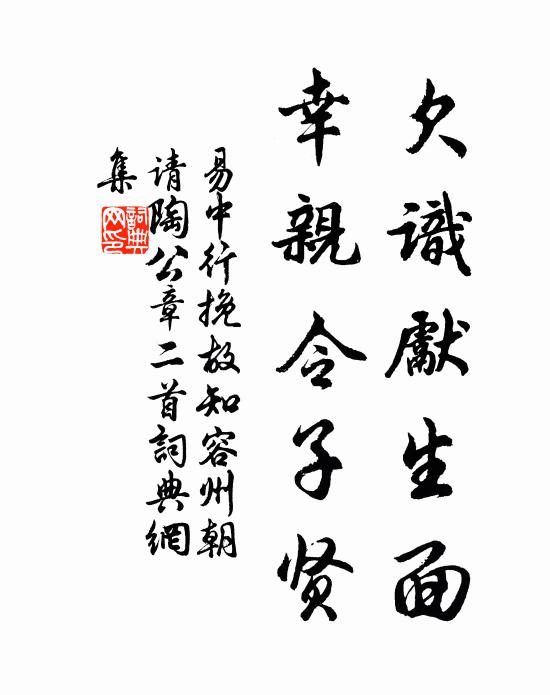 欠識獻生面
幸親令子贤
易中行挽故知容州朝
请陶公章二首詞典網
集
詞典
网印